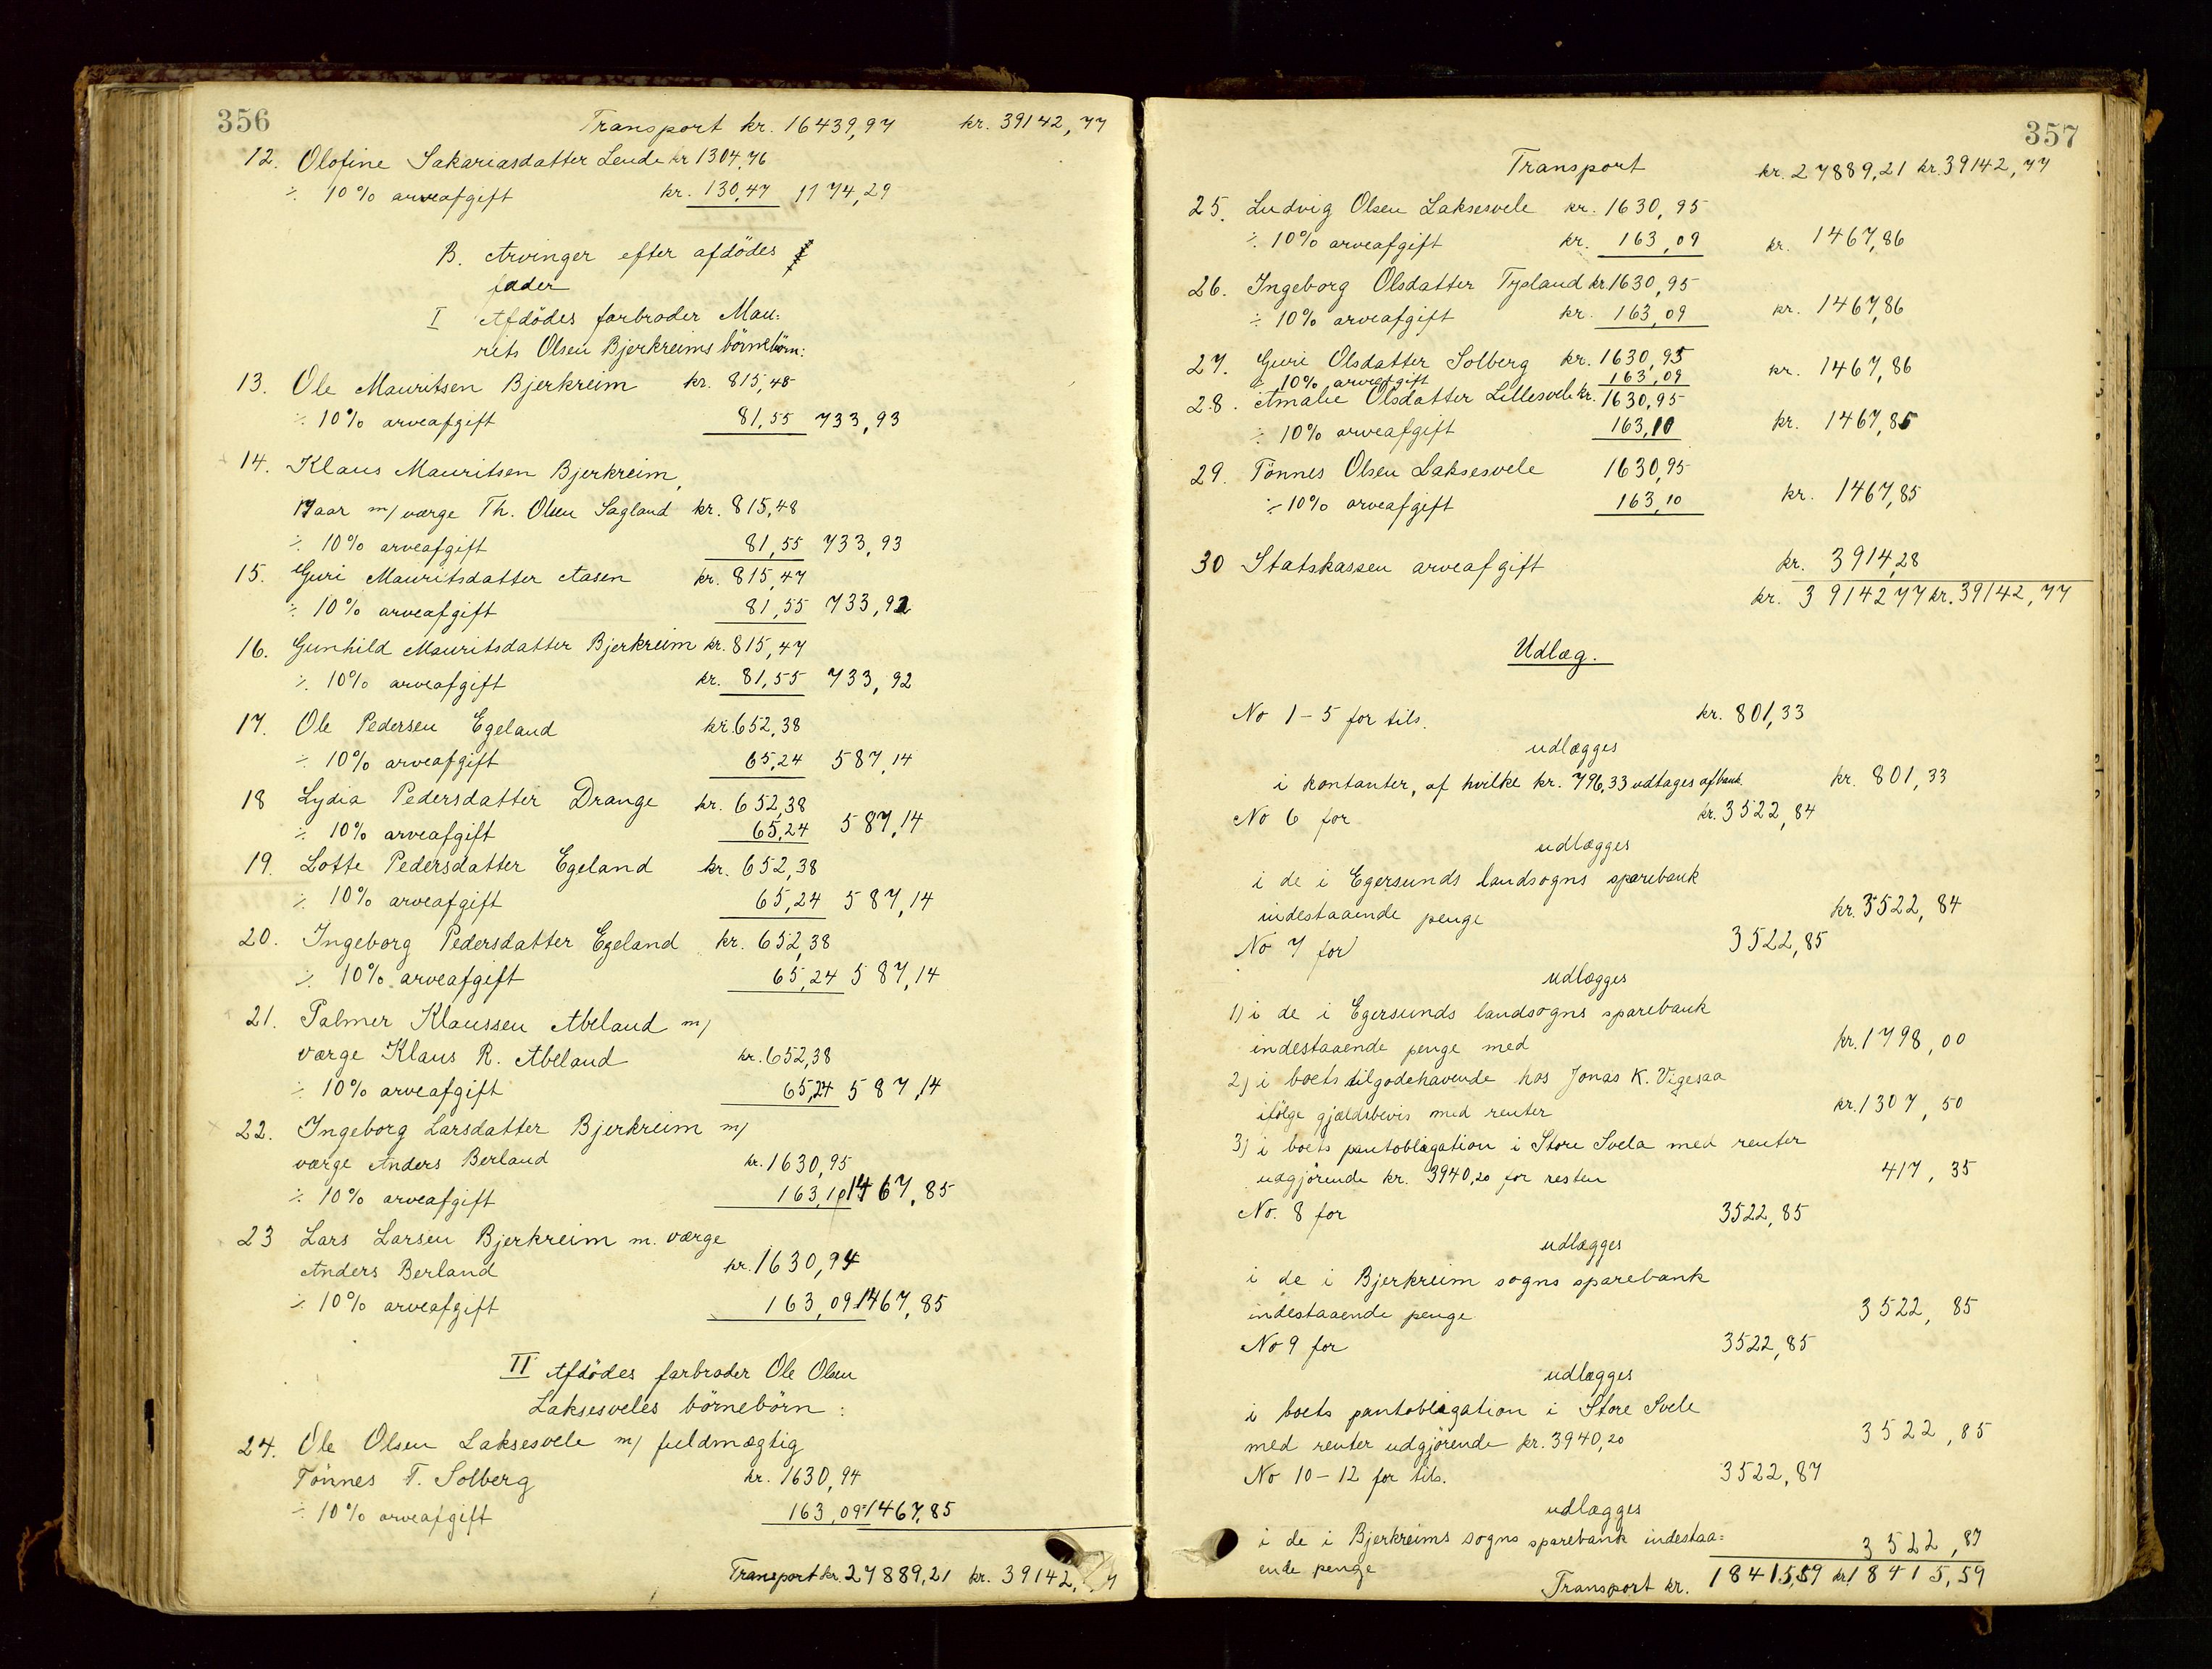 356
Transport kr. 16439,97 kr. 39142,77
12. Olofine Sakariasdatter Lende kr 1304,76
÷ 10% arveafgift kr. 130,47 1174,29
B. Arvinger efter afdödes
fader
I Afdödes farbroder Mau:
rits Olsen Bjerkreims börnebörn:
13. Ole Mauritsen Bjerkreim kr. 815,48
÷ 10% arveafgift 81,55 733,93
14. Klaus Mauritsen Bjerkreim,
17 aar m/ værge Th. Olsen Sagland kr. 815,48
÷ 10% arveafgift 81,55 733,93
15. Guri Mauritsdatter Aasen kr. 815,47
÷ 10% arveafgift 81,55 733,92
16. Gunhild Mauritsdatter Bjerkreim kr. 815,47
÷ 10% arveafgift kr. 81,55 733,92
17. Ole Pedersen Egeland kr. 652,38
÷ 10% arveafgift 65,24 587,14
18 Lydia Pedersdatter Drange kr. 652,38
÷ 10% arveafgift 65,24 587,14
19. Lotte Pedersdatter Egeland kr. 652,38
÷ 10% arveafgift 65,24 587,14
20. Ingeborg Pedersdatter Egeland kr. 652,38
÷ 10% arveafgift 65,24 587,14
21. Palmer Klaussen Abeland m/
værge Klaus R. Abeland kr. 652,38
÷ 10% arveafgift 65,24 587,14
22. Ingeborg Larsdatter Bjerkreim m/
værge Anders Berland kr. 1630,95
÷ 10% arveafgift 163,10 1467,85
23 Lars Larsen Bjerkreim m. værge
Anders Berland kr. 1630,94
÷ 10% arveafgift 163,09 1467,85
II Afdödes farbroder Ole Olsen
Laksesveles börnebörn:
24. Ole Olsen Laksesvele m/ fuldmægtig
Tönnes T. Solberg kr. 1630,94
÷ 10% arveafgift 163,09 1467,85
Transport kr. 27889,21 kr. 39142, 7
357
Transport kr. 27889,21 kr. 39142,77
25. Ludvig Olsen Laksesvele kr. 1630,95
÷ 10% arveafgift kr. 163,09 kr. 1467,86
26. Ingeborg Olsdatter Tysland kr 1630,95
÷ 10% arveafgift kr. 163,09 kr. 1467,86
27. Guri Olsdatter Solberg kr. 1630,95
÷ 10% arveafgift 163,09 kr. 1467,86
28. Amalie Olsdatter Lillesvele kr. 1630,95
÷ 10% arveafgift 163,10 kr. 1467,85
29. Tönnes Olsen Laksesvele 1630,95
÷ 10% arveafgift 163,10 kr. 1467,85
30 Statskassen arveafgift kr. 3914,28
kr. 39142 77 kr. 39142,77
Udlæg.
No 1-5 for tils. kr. 801,33
udlægges
i kontanter, af hvilke kr. 796,33 udtages af bank kr. 801,33
No 6 for kr. 3522,84
udlægges
i de i Egersunds landsogns sparebank
indestaaende penge kr. 3522,84
No 7 for 3522,85
udlægges
1) i de i Egersunds landsogns sparebank
indestaaende penge med kr. 1798,00
2) i boets tilgodehavende hos Jonas K. Vigesaa
ifölge gjældsbevis med renter kr. 1307,50
3) i boets pantobligation i Store Svela med renter
udgjörende kr. 3940,20 for resten 417,35
No. 8 for 3522,85
udlægges
i de i Bjerkreim sogns sparebank
indestaaende penge 3522,85
No 9 for 3522,85
udlægges
i boets pantobligation i Store Svele
med renter udgjörende kr. 3940,20 3522,85
No 10-12 for tils. 3522,87
udlægges
i de i Bjerkreims sogns sparebank indestaa=
ende penge 3522,87
Transport kr. 18415,59 kr 18415,59